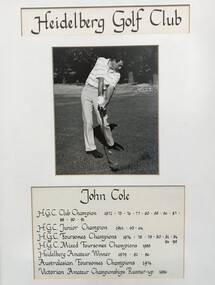 Heidelberg Golf Club
John Cole
H.G.C. Club Champion 1972 - 75 - 76 - 77 - 80 - 86 - 87 -
88 - 90 - 91
H.G.C. Junior Champion 1962 - 63 - 64
H.G.C. Foursomes Champions 1974 - 78 - 79 - 80 - 81 - 84
H.G.C. Mixed Foursomes Champions 1985
Heidelberg Amateur Winner 1979 - 81 - 86
Australasian Foursomes Champions 1974
Victorian Amateur Championships Runner-up 1980